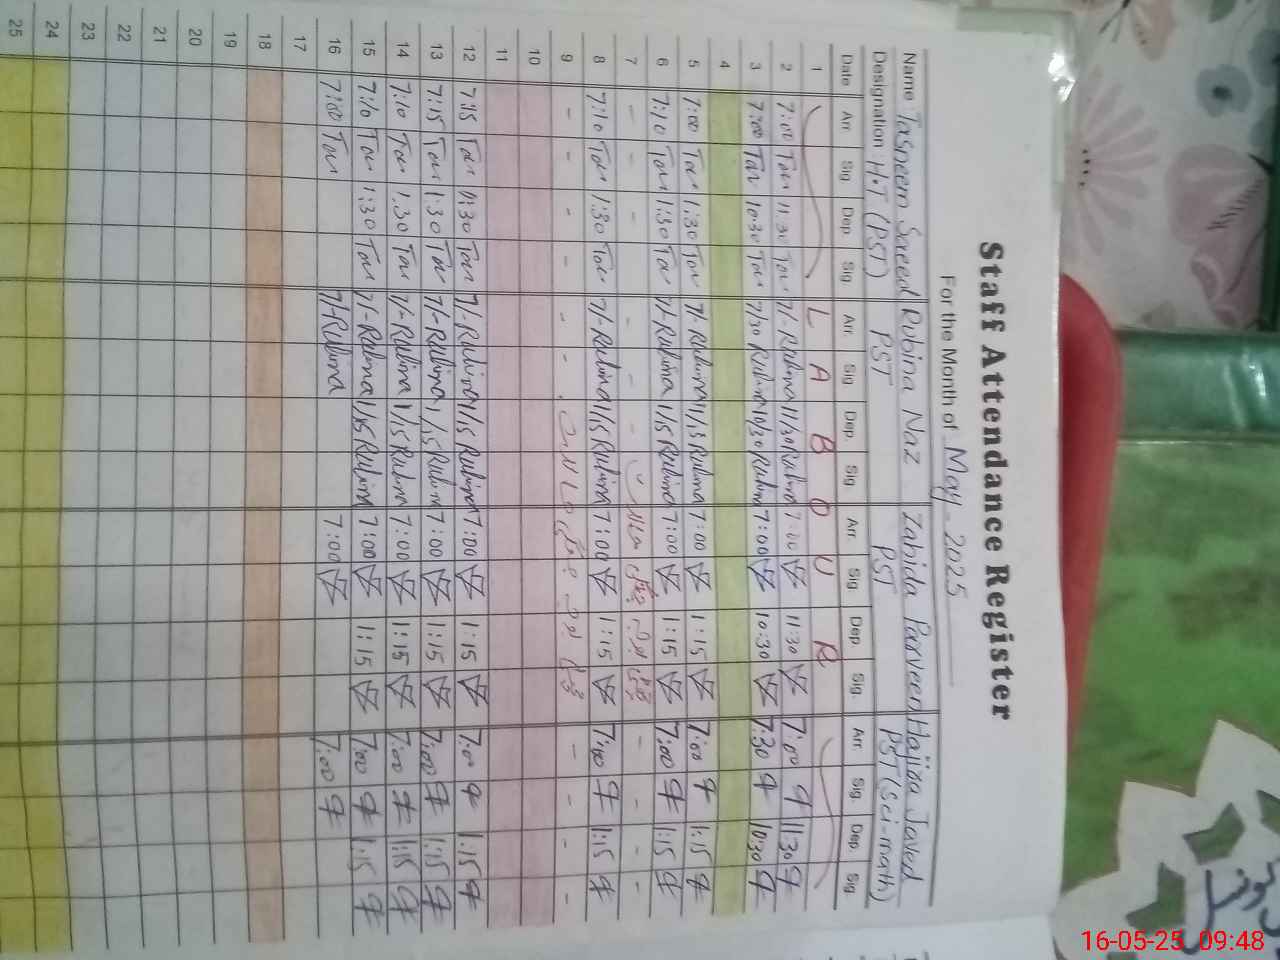 Staff Attendance Register
For the Month of May - 2025
Name Tasneem Saeed Rubina Naz Zahida Parveen Hajira Javed
Designation H.T (PST) PST PST PST (sci-math)
Date Arr. Sig. Dep. Sig. Arr. Sig. Dep. Sig. Arr. Sig. Dep. Sig. Arr. Sig. Dep. Sig.
1 L A B O U R
2 7:00 Tas 11:30 Tas 7/- Rubina 11/30 Rubina 7:00 11:30 7:00 11:30
3 7:00 Tas 10:30 Tas 7/30 Rubina 10/30 Rubina 7:00 10:30 7:30 10:30
4
5 7:00 Tas 1:30 Tas 7/- Rubina 1/15 Rubina 7:00 1:15 7:00 1:15
6 7:10 Tas 1:30 Tas 7/- Rubina 1/15 Rubina 7:00 1:15 7:00 1:15
7 - - - - - - - -
8 7:10 Tas 1:30 Tas 7/- Rubina 1/15 Rubina 7:00 1:15 7:00 1:15
9 - - - - - - - - - -
10
11
12 7:15 Tas 1:30 Tas 7/- Rubina 1/15 Rubina 7:00 1:15 7:00 1:15
13 7:15 Tas 1:30 Tas 7/- Rubina 1/15 Rubina 7:00 1:15 7:00 1:15
14 7:10 Tas 1:30 Tas 7/- Rubina 1/15 Rubina 7:00 1:15 7:00 1:15
15 7:10 Tas 1:30 Tas 7/- Rubina 1/15 Rubina 7:00 1:15 7:00 1:15
16 7:00 Tas 7/- Rubina 7:00 7:00
17
18
19
20
21
22
23
24
25
16-05-25 09:48